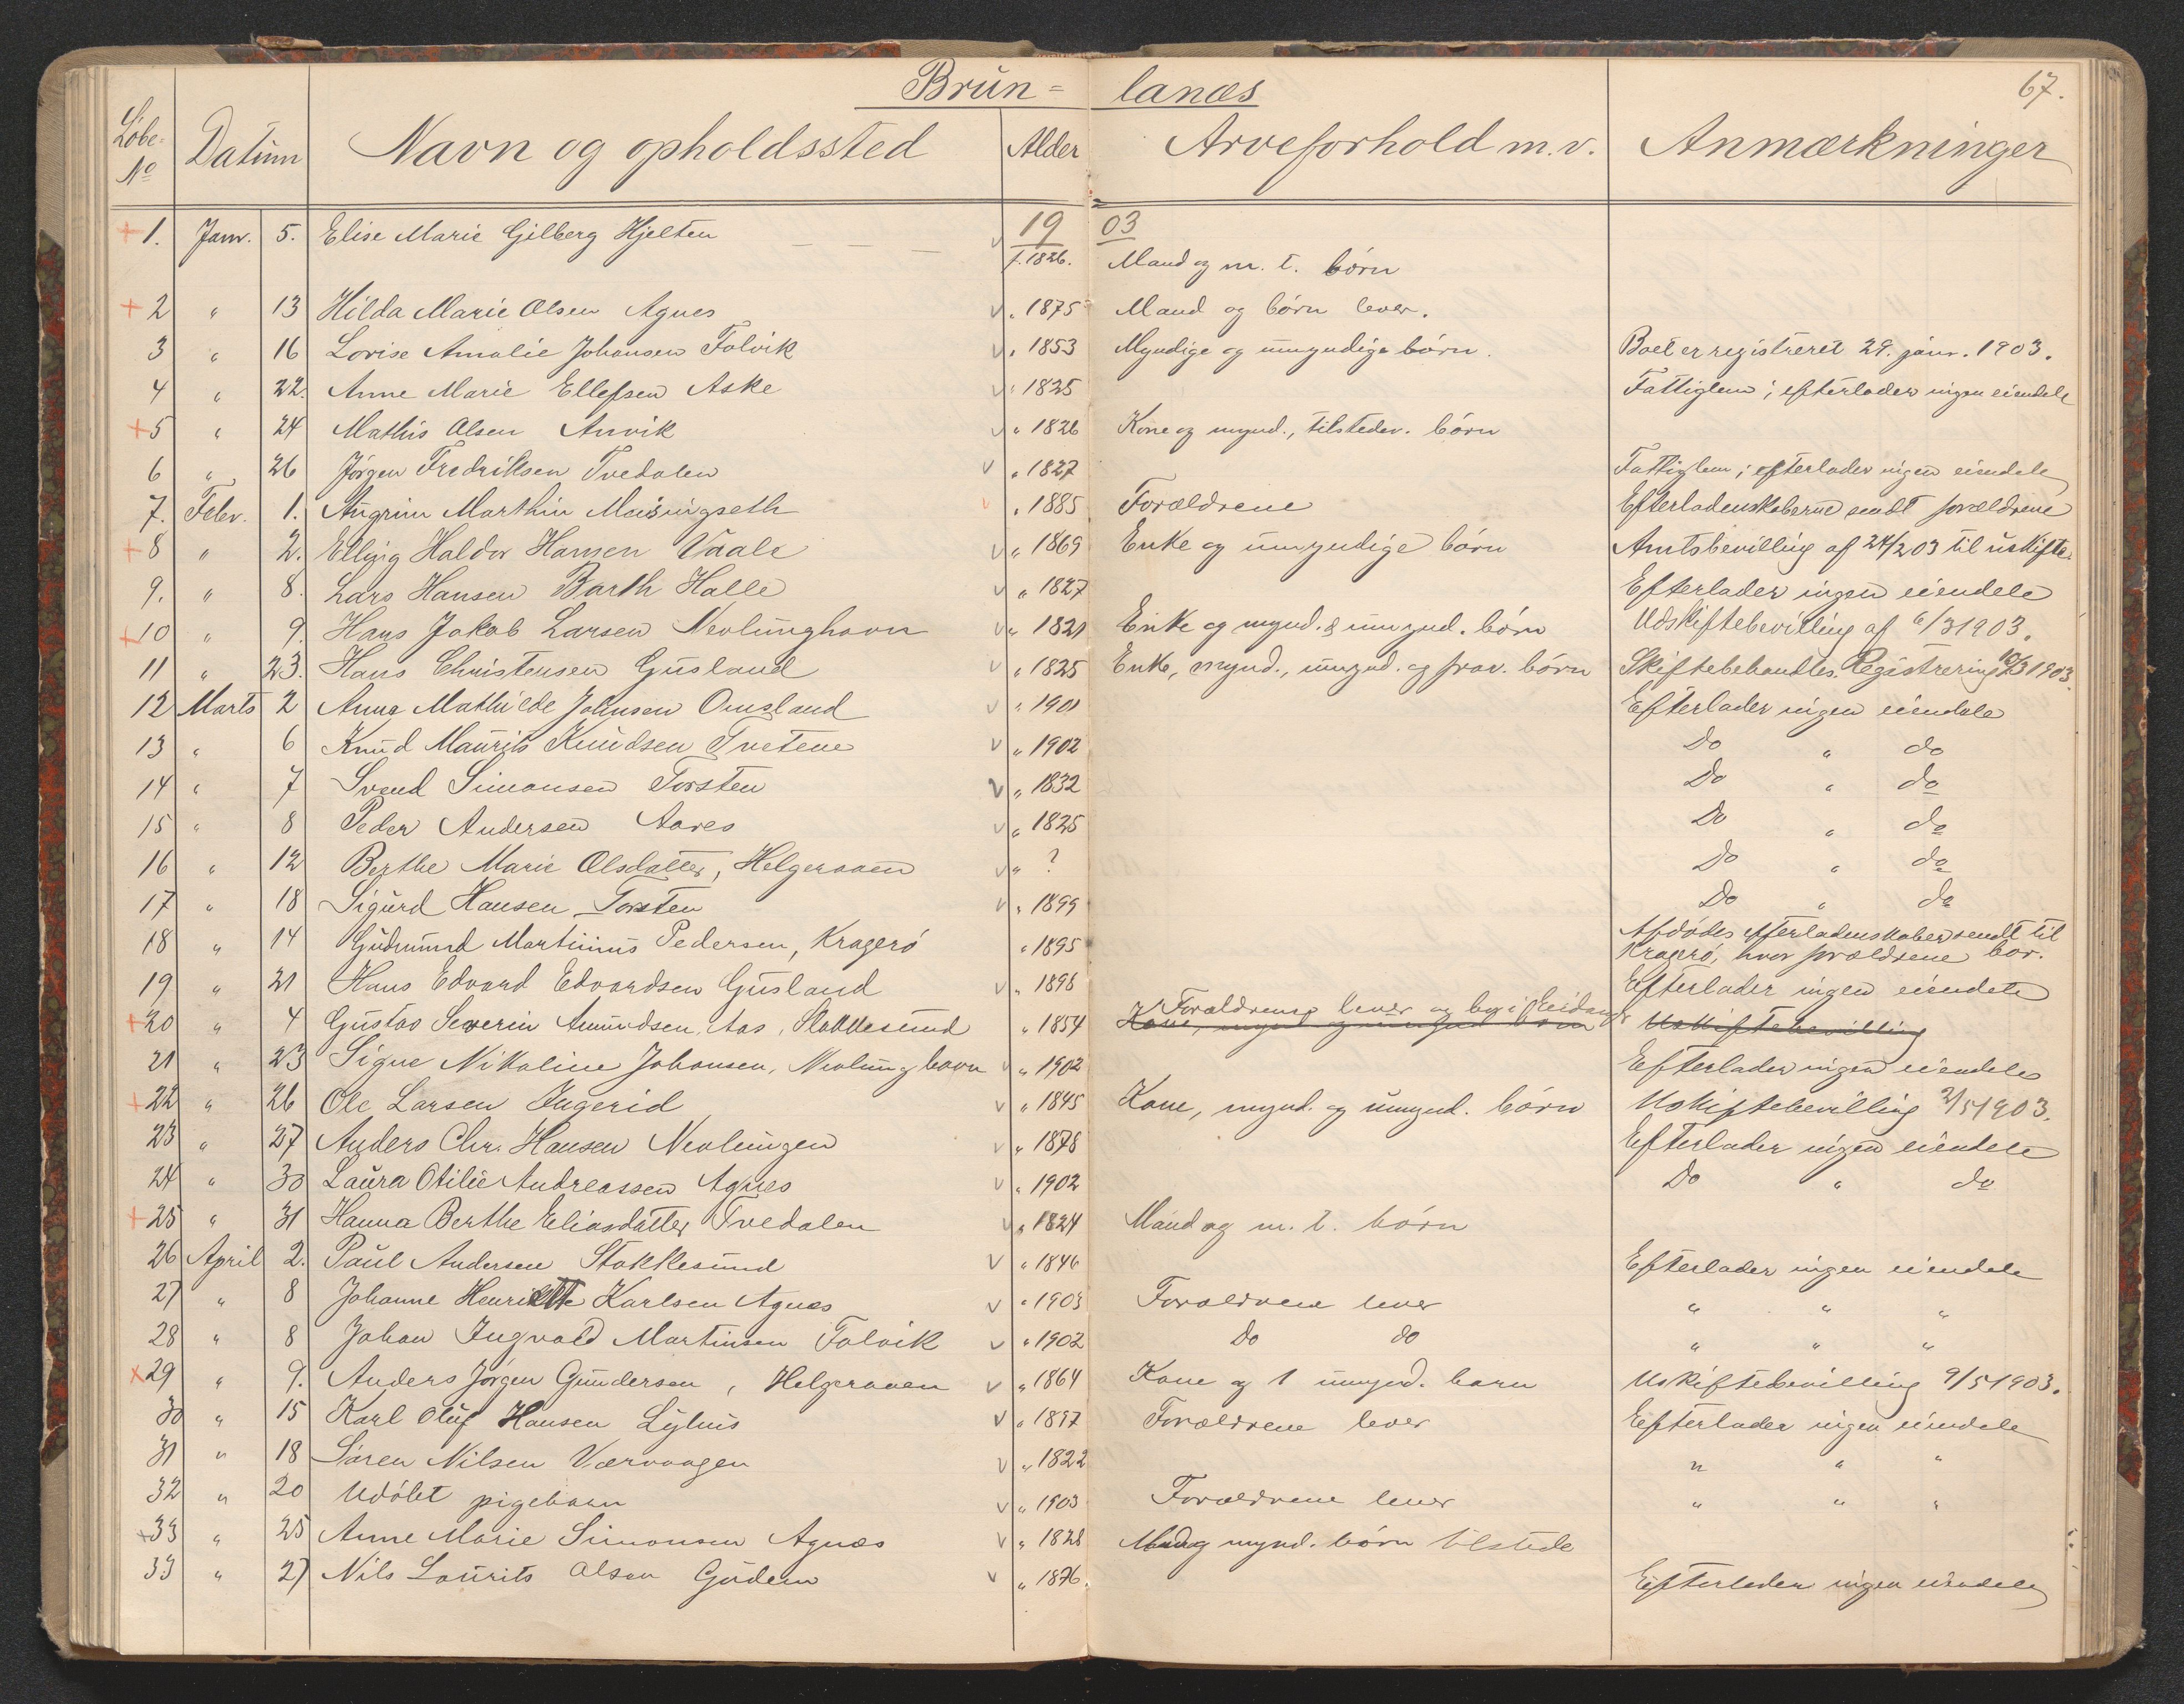 Brún= lanæs
67.
Løbe- No Datúm Navn og opholdssted Alder Arveforhold m.v. Anmærkninger
1903
+ 1. Janr. 5. Elise Marie Gilberg Hjelten f. 1826. Mand og m. t. børn
+ 2 " 13 Hilda Marie Olsen Agnes " 1875 Mand og børn lever.
3 " 16 Lovise Amalie Johansen Falvik " 1853 Myndige og úmyndige børn. Boet er registreret 29. janr. 1903.
4 " 22. Anne Marie Ellefsen Aske " 1825 Fattiglem; efterlader ingen eiendele
+ 5 " 24 Mathis Olsen Anvik " 1826 Kone og mynd., tilstedev. børn
6 " 26 Jørgen Fredriksen Tvedalen " 1827 Fattiglem; efterlader ingen eiendele
7. Febr. 1. Angrim Marthin " 1885 Forældrene Efterladenskaberne sendt forældrene
+ 8 " 2. Elling Haldor Hansen Vaale " 1869 Enke og úmyndige børn Amtsbevilling af 24/2 03 til uskifte.
9. " 8. Lars Hansen Barth Halle " 1827 Efterlader ingen eiendele
+ 10 " 9. Hans Jakob Larsen Nevlúnghavn " 1821 Enke og mynd. & úmynd. børn Udskiftebevilling af 6/3 1903.
11 " 23. Hans Christensen Gúsland " 1825 Enke, mynd., úmynd. og frav. børn Skiftebehandles. Registrering 10/3 1903.
12 Marts 2 Anna Mathilde Johnsen Omsland " 1901 Efterlader ingen eiendele
13 " 6 Knúd Maúrits Knúdsen Tvetene " 1902 Do " do
14 " 7 Svend Simonsen Torsten " 1832 Do " do
15 " 8 Peder Andersen Aares " 1825 Do " do
16 " 12 Berthe Marie Olsdatter, Helgeraaen " ? Do " do
17 " 18 Sigúrd Hansen Torsten " 1899 Do " do
18 " 14 Gúdmúnd Martinius Pedersen, Kragerø " 1895 Afdødes efterladenskaber sendt til
Kragerø, hvor forældrene bor.
19 " 21 Hans Edvard Edvardsen Gúsland " 1898 Efterlader ingen eiendele
Forældrene lever og bor i Eidanger
+ 20 " 4 Gústav Severin Amúndsen Aas, Stokkesúnd " 1854 Kone, mynd og úmynd børn Uskiftebevilling
21 " 23 Signe Nikoline Johansen, Nevlúnghavn " 1902 Efterlader ingen eiendele
+ 22 " 26 Ole Larsen Ingerid " 1845 Kone, mynd. og úmynd. børn Uskiftebevilling 2/5 1903.
23 " 27 Anders Chr. Hansen Nevlúngen " 1878 Efterlader ingen eiendele
24 " 30 Laúra Otilie Andreassen Agnes " 1902 Do " do
+ 25 " 31 Hanna Berthe Eliasdatter Tvedalen " 1824 Mand og m. t. børn
26 April 2. Paúl Andersen Stokkesúnd " 1846 Efterlader ingen eiendele
27 " 8 Johanne Henriette Karlsen Agnes " 1903 Forældrene lever " " "
28 " 8 Johan Ingvald Martinsen Falvik " 1902 Do do " " "
x 29 " 9. Anders Jørgen Gúndersen, Helgeraaen " 1864 Kone og 1 úmynd. barn Uskiftebevilling 9/5 1903.
30 " 15 Karl Olúf Hansen Lyhús " 1897 Forældrene lever Efterlader ingen eiendele
31 " 18 Søren Nilsen Værvaagen " 1822 " " "
32 " 20 Udøbt pigebarn " 1903 Forældrene lever " " "
x 33 " 25 Anne Marie Simonsen Agnes " 1828 Mand og mynd. børn tilstede
33 " 27 Nils Laúrits Olsen Gúdem " 1876. Efterlader ingen eiendele